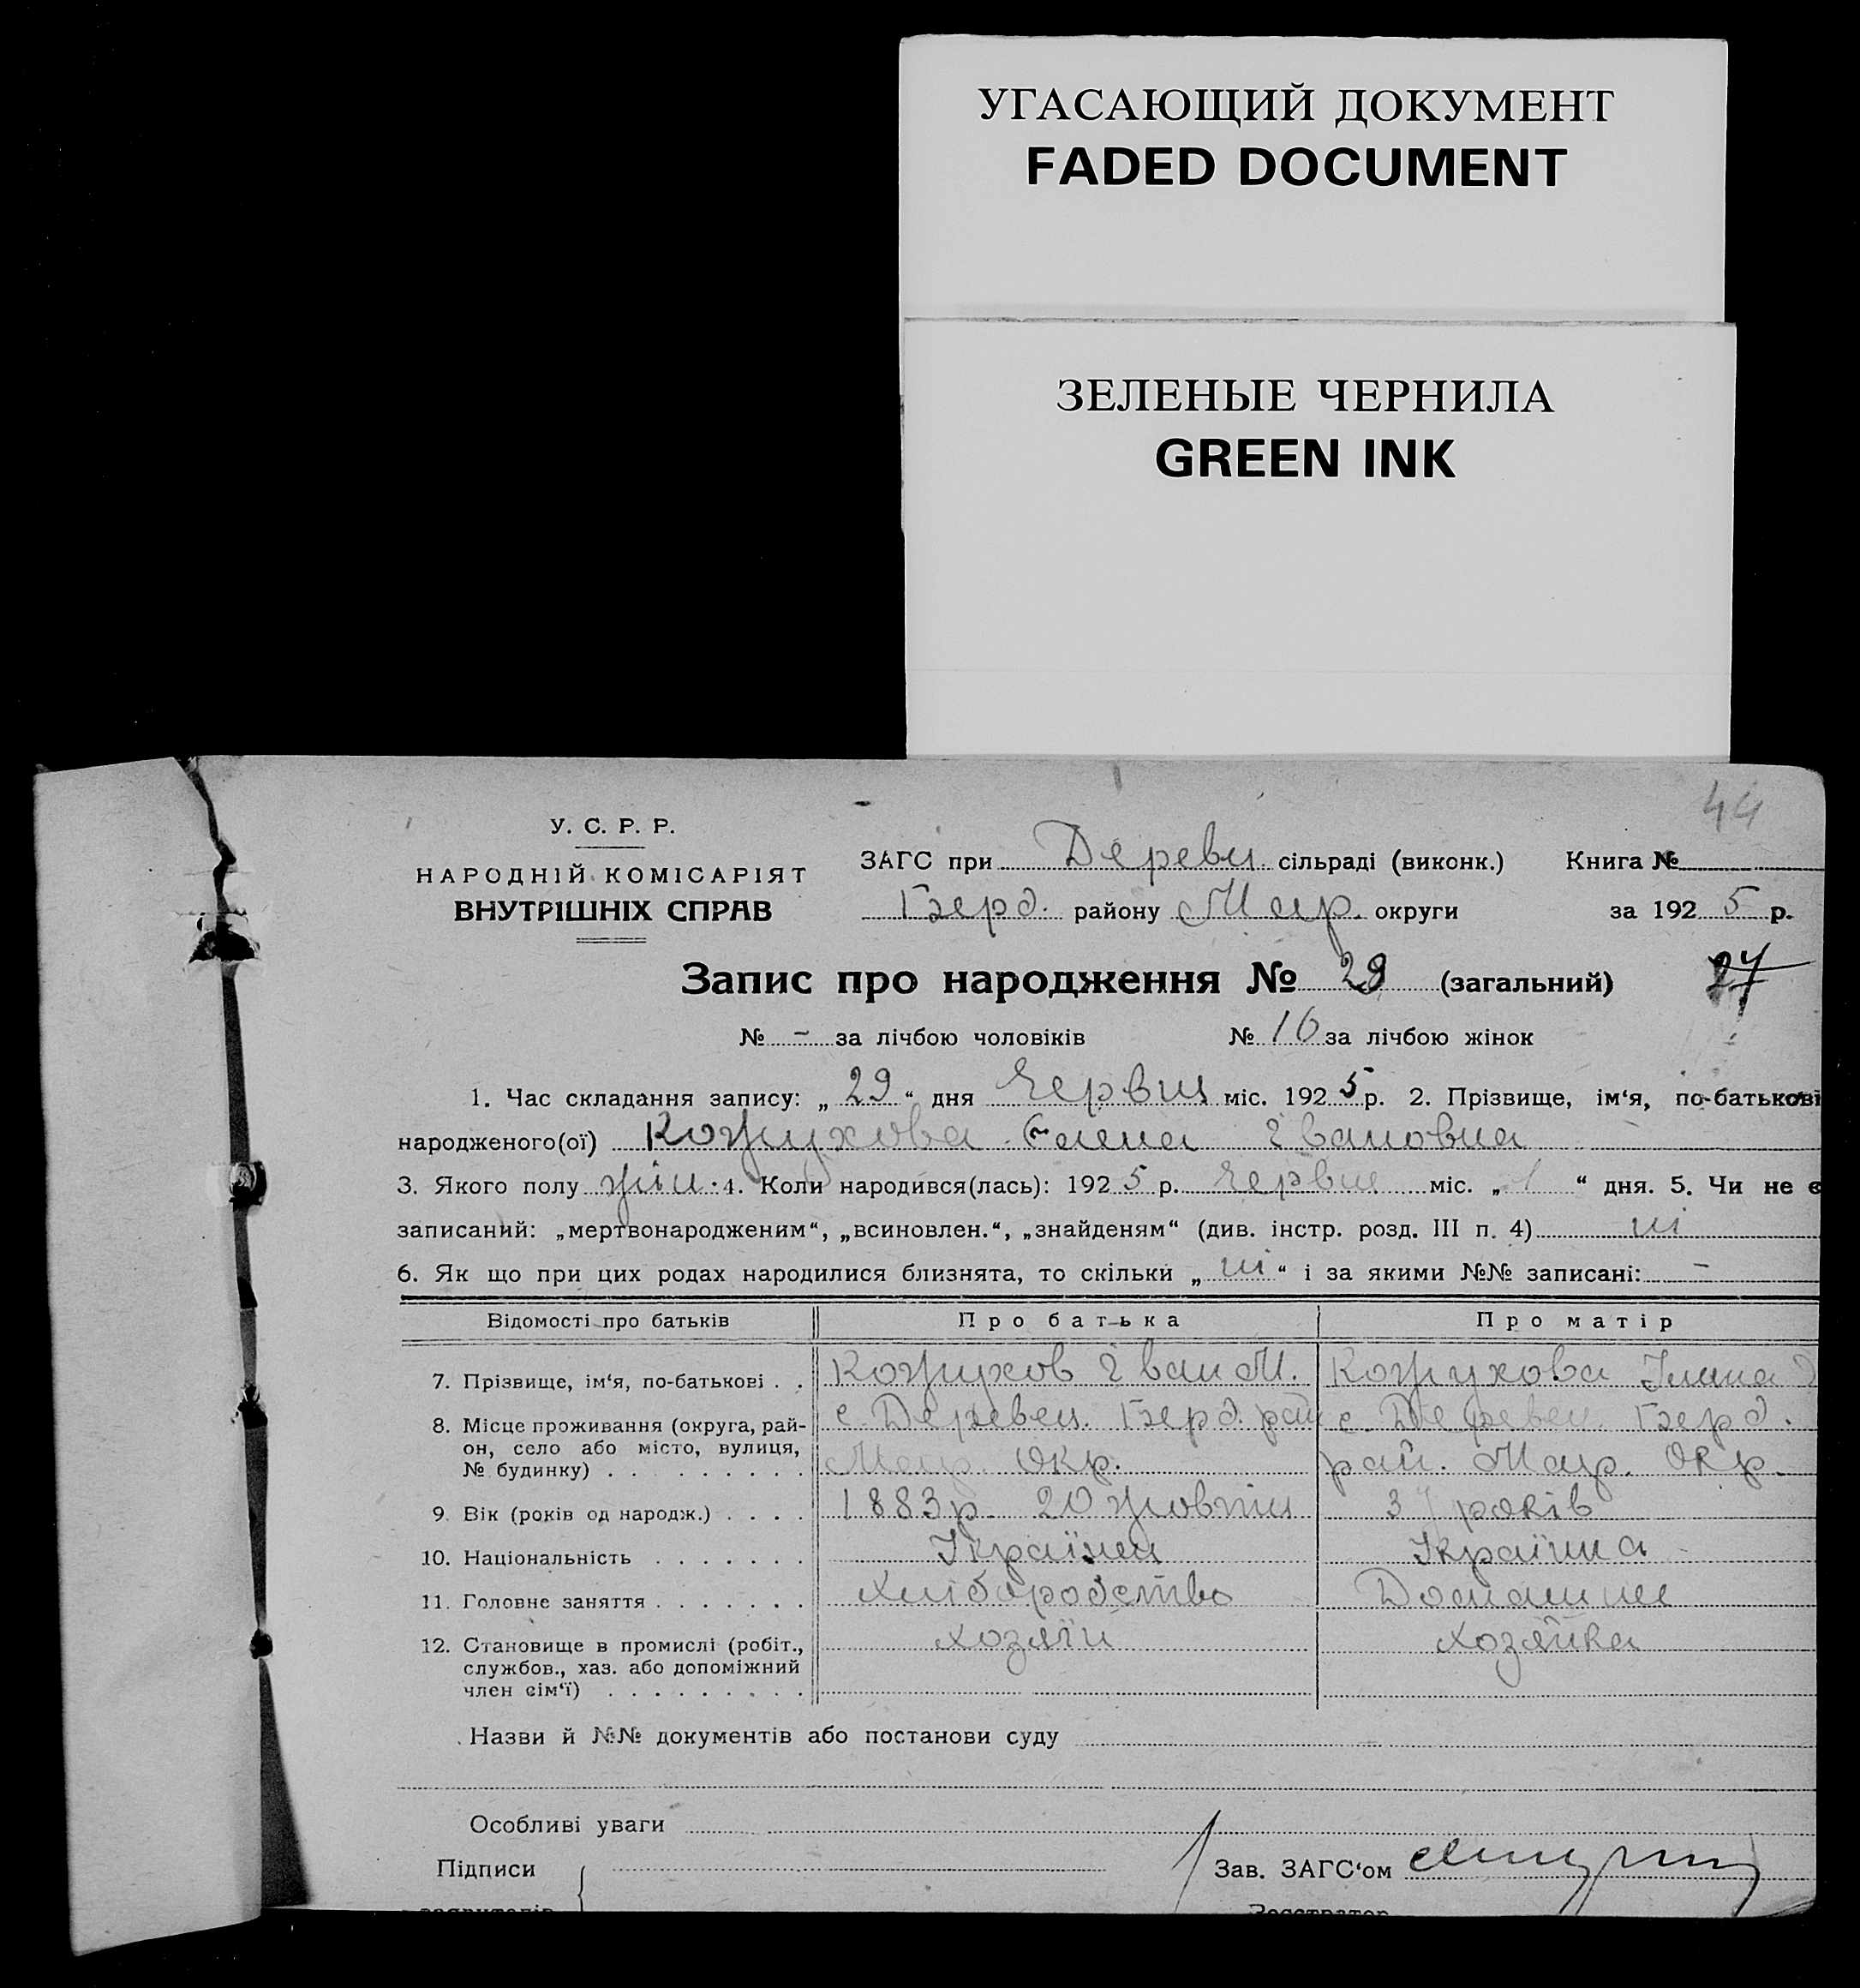 УГАСАЮЩИЙ ДОКУМЕНТ
FADED DOCUMENT
ЗЕЛЕНЫЕ ЧЕРНИЛА
GREEN INK
44
У. С. Р. Р.
НАРОДНІЙ КОМІСАРІЯТ
ВНУТРІШНІХ СПРАВ
ЗАГС при Деревц. сільраді (виконк.) Книга №
Берд. району Мар. округи за 1925 р.
Запис про народження № 29 (загальний) 27
№ - за лічбою чоловіків № 16 за лічбою жінок
1. Час складання запису: „29“ дня Червня міс. 1925 р. 2. Прізвище, ім‘я, по-батькові
народженого(ої) Кожухова Елена Івановна
3. Якого полу жін. 4. Коли народився(лась): 1925 р. Червня міс. „1“ дня. 5. Чи не є
записаний: „мертвонародженим“, „всиновлен.“, „знайденям“ (див. інстр. розд. III п. 4) ні
6. Як що при цих родах народилися близнята, то скільки „ні“ і за якими №№ записані: -
Відомості про батьків Про батька Про матір
7. Прізвище, ім‘я, по-батькові . . Кожухов Іван М. Кожухова
8. Місце проживання (округа, рай- с. Деревец. Берд. рай с. Деревец. Берд.
он, село або місто, вулиця,
№ будинку) . . . . . . . . . Мар. Окр. рай. Мар. Окр.
9. Вік (років од народж.) . . . . 1883р. 20 жовтня 37 років
10. Національність . . . . . . . Українец Українка
11. Головне заняття . . . . . . . Хліборобство Домашне
12. Становище в промислі (робіт., Хозяїн Хозяйка
службов., хаз. або допоміжний
член сім‘ї) . . . . . . . . .
Назви й №№ документів або постанови суду
Особливі уваги
Підписи Зав. ЗАГС‘ом